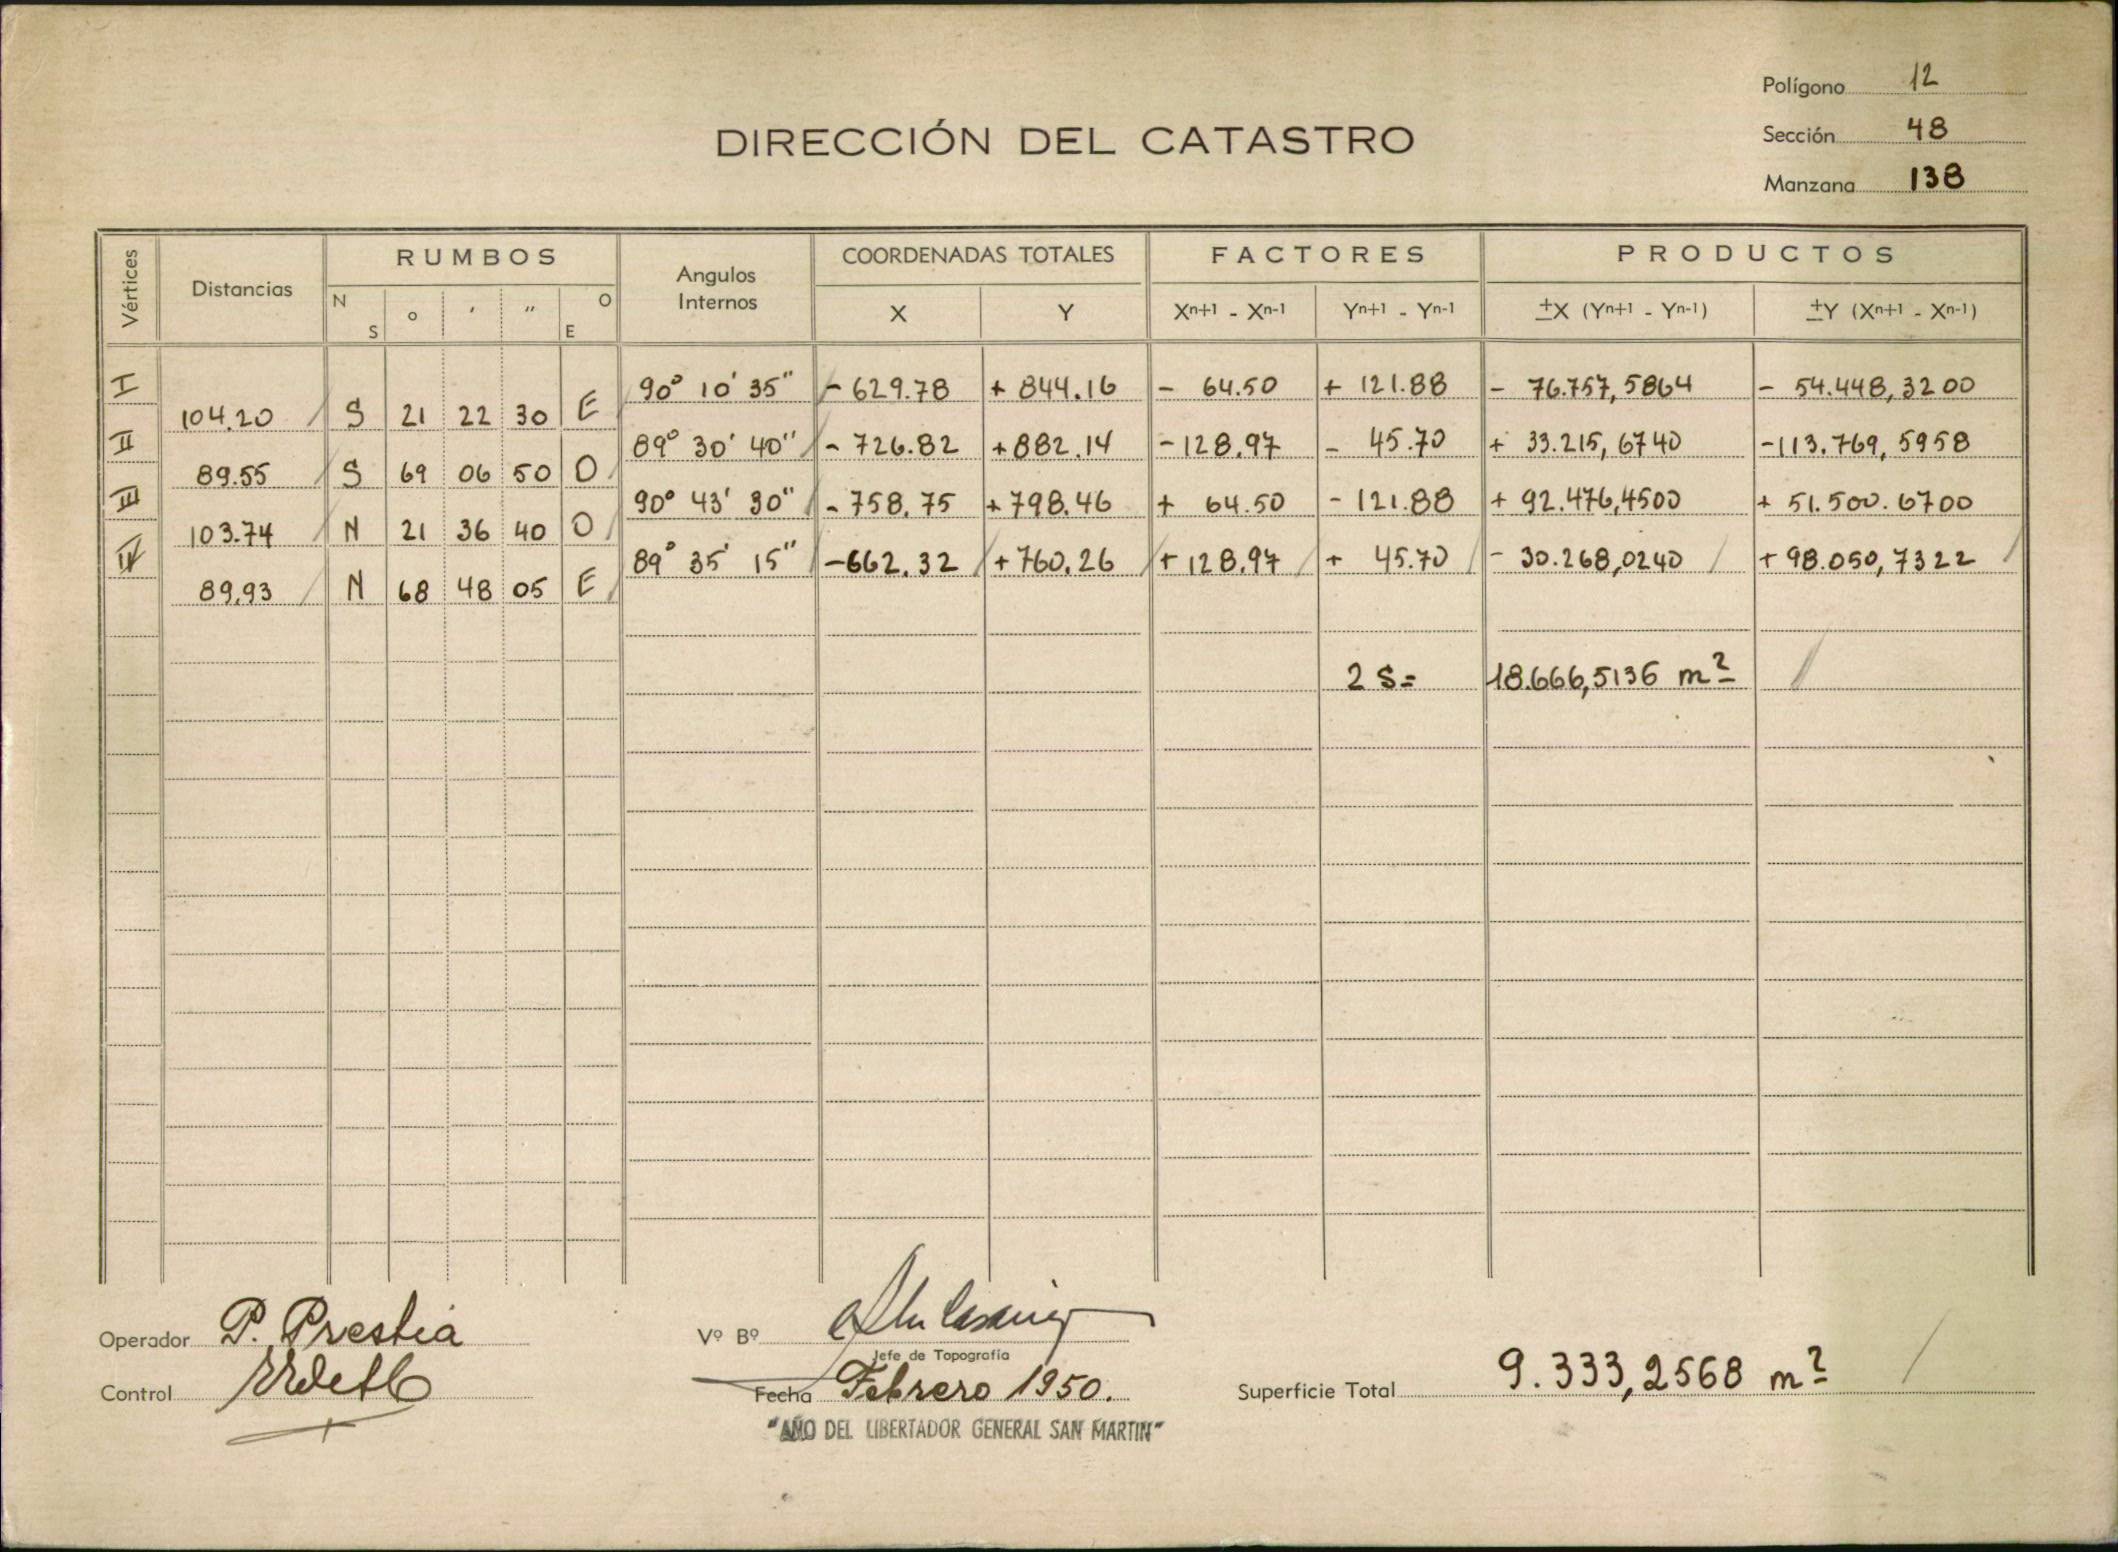 Polígono 12
DIRECCIÓN DEL CATASTRO
Sección 48
Manzana 138
Vértices Distancias RUMBOS Angulos Internos COORDENADAS TOTALES FACTORES PRODUCTOS
N S o ʼ ʼʼ O E X Y Xn+1 - Xn-1 Yn+1 - Yn-1 ±X (Yn+1 - Yn-1) ±Y (Xn+1 - Xn-1)
I 90° 10' 35" - 629.78 + 844.16 - 64.50 + 121.88 - 76.757,5864 - 54.448,3200
104.20 S 21 22 30 E
II 89° 30' 40" - 726.82 + 882.14 - 128.97 - 45.70 + 33.215,6740 - 113.769,5958
89.55 S 69 06 50 O
III 90° 43' 30" - 758.75 + 798.46 + 64.50 - 121.88 + 92.476,4500 + 51.500.6700
103.74 N 21 36 40 O
IV 89° 35' 15" - 662.32 + 760.26 + 128.97 + 45.70 - 30.268,0240 + 98.050,7322
89.93 N 68 48 05 E
2 S = 18.666,5136 m2
Operador P. Prestia
Vº Bº
Jefe de Topografía
Control
Fecha Febrero 1950.
Superficie Total 9.333,2568 m2
"AÑO DEL LIBERTADOR GENERAL SAN MARTIN"